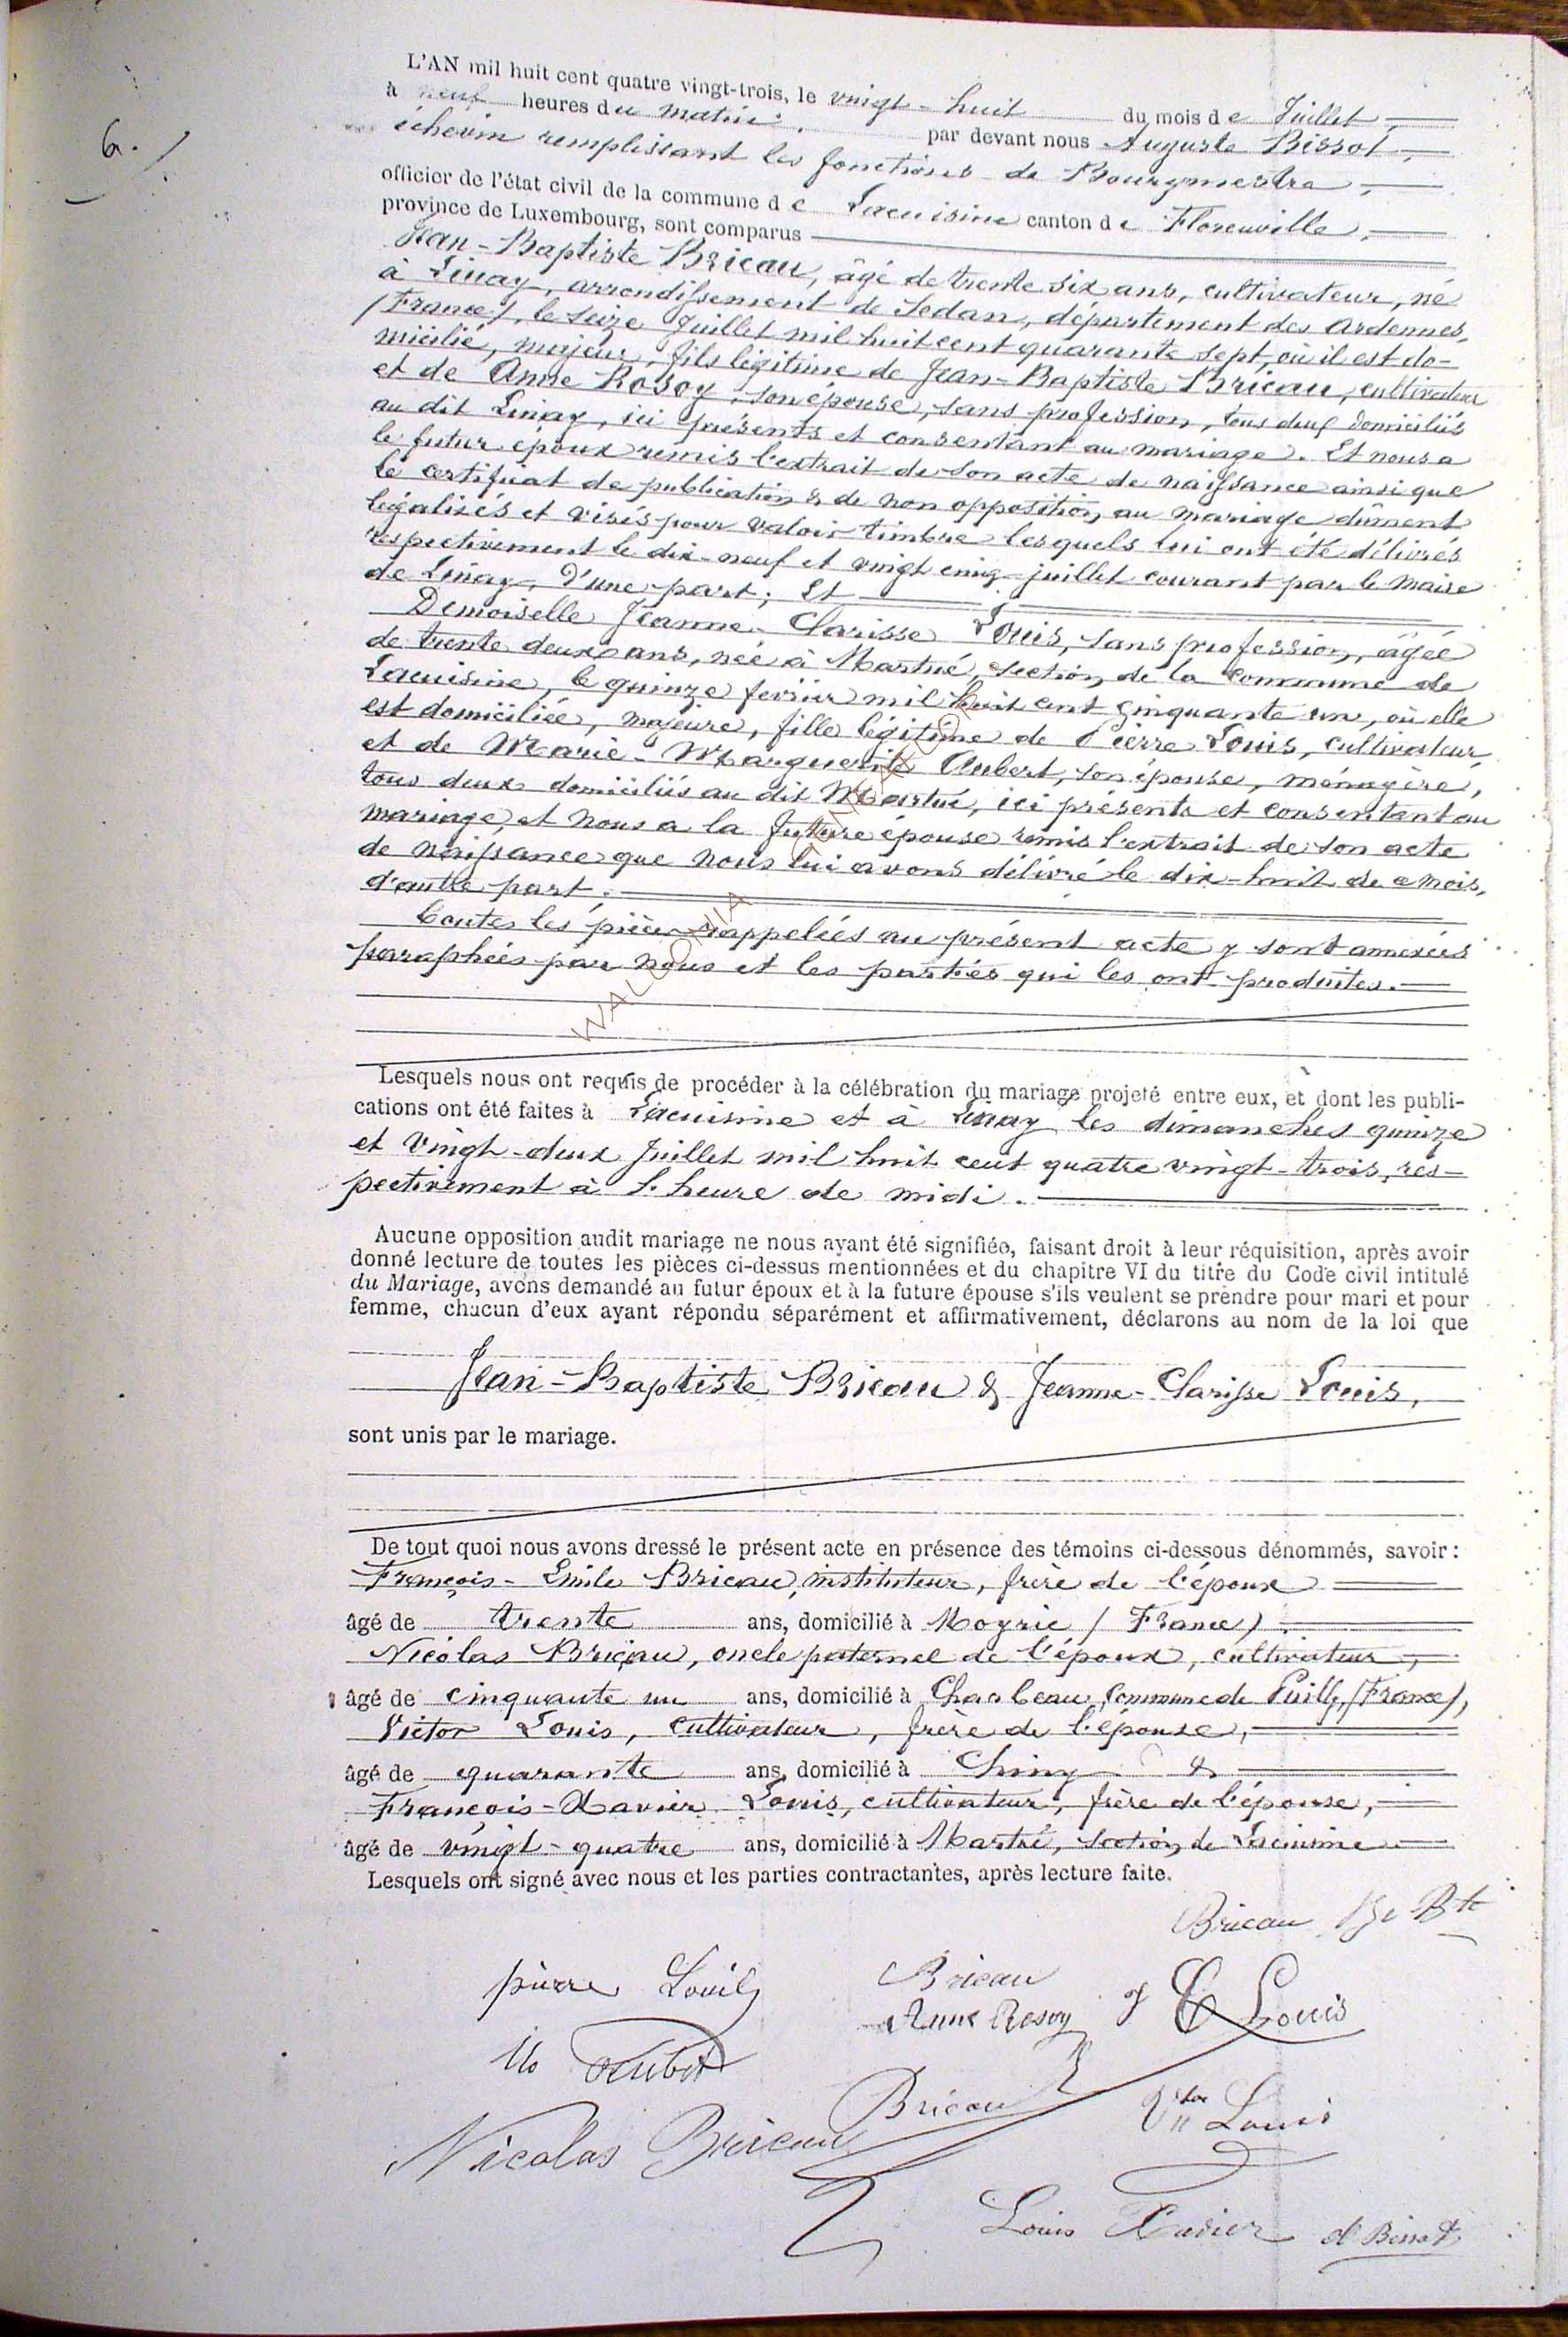 6.
L'AN mil huit cent quatre vingt-trois, le vingt-huit du mois de Juillet,
à neuf heures du matin, par devant nous Auguste Bissot,
échevin remplissant les fonctions de Bourgmestre,
officier de l'état civil de la commune de Lacuisine canton de Florenville,
province de Luxembourg, sont comparus
Jean-Baptiste Bricau, âgé de trente six ans, cultivateur, né
à Linay, arrondissement de Sedan, département des Ardennes,
(France), le seize Juillet mil huit cent quarante sept, où il est do-
micilié, majeur, fils légitime de Jean-Baptiste Bricau, cultivateur
et de Anne Rosoy, son épouse, sans profession, tous deux domiciliés
au dit Linay, ici présents et consentant au mariage. Et nous a
le futur époux remis l'extrait de son acte de naissance ainsi que
le certificat de publication & de non opposition au mariage dûment
légalisés et visés pour valoir timbre lesquels lui ont été délivrés
respectivement le dix-neuf et vingt cinq juillet courant par le Maire
de Linay, d'une part; Et
Demoiselle Jeanne-Clarisse Louis, sans profession, âgée
de trente deux ans, née à Martué, section de la commune de
Lacuisine, le quinze fevrier mil huit cent cinquante un, où elle
est domiciliée, majeure, fille légitime de Pierre Louis, cultivateur,
et de Marie-Marguerite Aubert, son épouse, ménagère,
tous deux domiciliés au dit Martué, ici présents et consentant au
mariage, et nous a la future épouse remis l'extrait de son acte
de naissance que nous lui avons délivré le dix-huit de ce mois,
d'autre part.
Toutes les pièces rappelées au présent acte y sont annexées
paraphées par nous et les parties qui les ont produites.
WALLONIA
Lesquels nous ont requis de procéder à la célébration du mariage projeté entre eux, et dont les publi-
cations ont été faites à Lacuisine et à Linay les dimanches quinze
et vingt-deux Juillet mil huit cent quatre vingt-trois, res-
pectivement à l'heure de midi.
Aucune opposition audit mariage ne nous ayant été signifiée, faisant droit à leur réquisition, après avoir
donné lecture de toutes les pièces ci-dessus mentionnées et du chapitre VI du titre du Code civil intitulé
du Mariage, avons demandé au futur époux et à la future épouse s'ils veulent se prendre pour mari et pour
femme, chacun d'eux ayant répondu séparément et affirmativement, déclarons au nom de la loi que
Jean-Baptiste Bricau & Jeanne-Clarisse Louis,
sont unis par le mariage.
De tout quoi nous avons dressé le présent acte en présence des témoins ci-dessous dénommés, savoir :
François-Emile Bricau, instituteur, frère de l'époux
âgé de trente ans, domicilié à Mogrie (France)
Nicolas Bricau, oncle paternel de l'époux, cultivateur,
âgé de cinquante un ans, domicilié à Charbeau, commune de Puilly, (France),
Victor Louis, cultivateur, frère de l'épouse,
âgé de quarante ans, domicilié à Chiny &
François-Xavier Louis, cultivateur, frère de l'épouse,
âgé de vingt-quatre ans, domicilié à Martué, section de Lacuisine
Lesquels ont signé avec nous et les parties contractantes, après lecture faite.
Bricau Bte
pierre Louis Bricau
Anne Rosoy J C Louis
M Aubert
Bricau Vtor Louis
Nicolas Bricau
Louis Xavier A Bissot